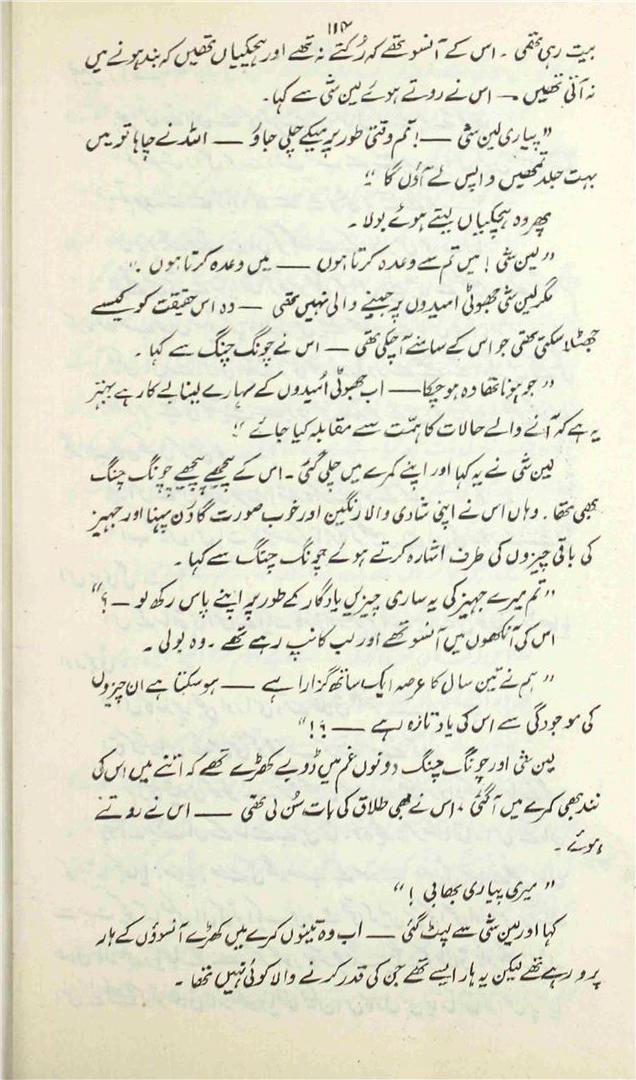 ۱۱۴
بیت رہی تھی ۔ اس کے آنسو تھے کہ رُکتے نہ تھے اور ہچکیاں تھیں کہ بند ہونے میں
نہ آتی تھیں — اس نے روتے ہوئے لین شی سے کہا۔
”پیاری لین شی —! تم وقتی طور پر میکے چلی جاؤ — اللہ نے چاہا تو میں
بہت جلد تمھیں واپس لے آؤں گا “
پھر وہ ہچکیاں لیتے ہوئے بولا ۔
”لین شی ! میں تم سے وعدہ کرتا ہوں — میں وعدہ کرتا ہوں ۔“
مگر لین شی جھوٹی امیدوں پر جینے والی نہیں تھی — وہ اس حقیقت کو کیسے
جھٹلا سکتی تھی جو اس کے سامنے آ چکی تھی — اس نے چونگ چنگ سے کہا ۔
” جو ہونا تھا وہ ہو چکا — اب جھوٹی اُمیدوں کے سہارے لینا بے کار ہے بہتر
یہ ہے کہ آنے والے حالات کا ہمّت سے مقابلہ کیا جائے “
لین شی نے یہ کہا اور اپنے کمرے میں چلی گئی ۔ اس کے پیچھے پیچھے چونگ چنگ
بھی تھا ۔ وہاں اس نے اپنی شادی والا رنگین اور خوب صورت گاؤن پہنا اور جہیز
کی باقی چیزوں کی طرف اشارہ کرتے ہوئے چونگ چنگ سے کہا ۔
” تم میرے جہیز کی یہ ساری چیزیں یادگار کے طور پر اپنے پاس رکھ لو — ؟“
اس کی آنکھوں میں آنسو تھے اور لب کانپ رہے تھے ۔ وہ بولی ۔
” ہم نے تین سال کا عرصہ ایک ساتھ گزارا ہے — ہو سکتا ہے ان چیزوں
کی موجودگی سے اس کی یاد تازہ رہے — ؟!“
لین شی اور چونگ چنگ دونوں غم میں ڈوبے کھڑے تھے کہ اتنے میں اس کی
نند بھی کمرے میں آ گئی ۔ اس نے بھی طلاق کی بات سُن لی تھی — اس نے روتے
ہوئے ۔
” میری پیاری بھابی !“
کہا اور لین شی سے لپٹ گئی — اب وہ تینوں کمرے میں کھڑے آنسوؤں کے ہار
پرو رہے تھے لیکن یہ ہار ایسے تھے جن کی قدر کرنے والا کوئی نہیں تھا ۔